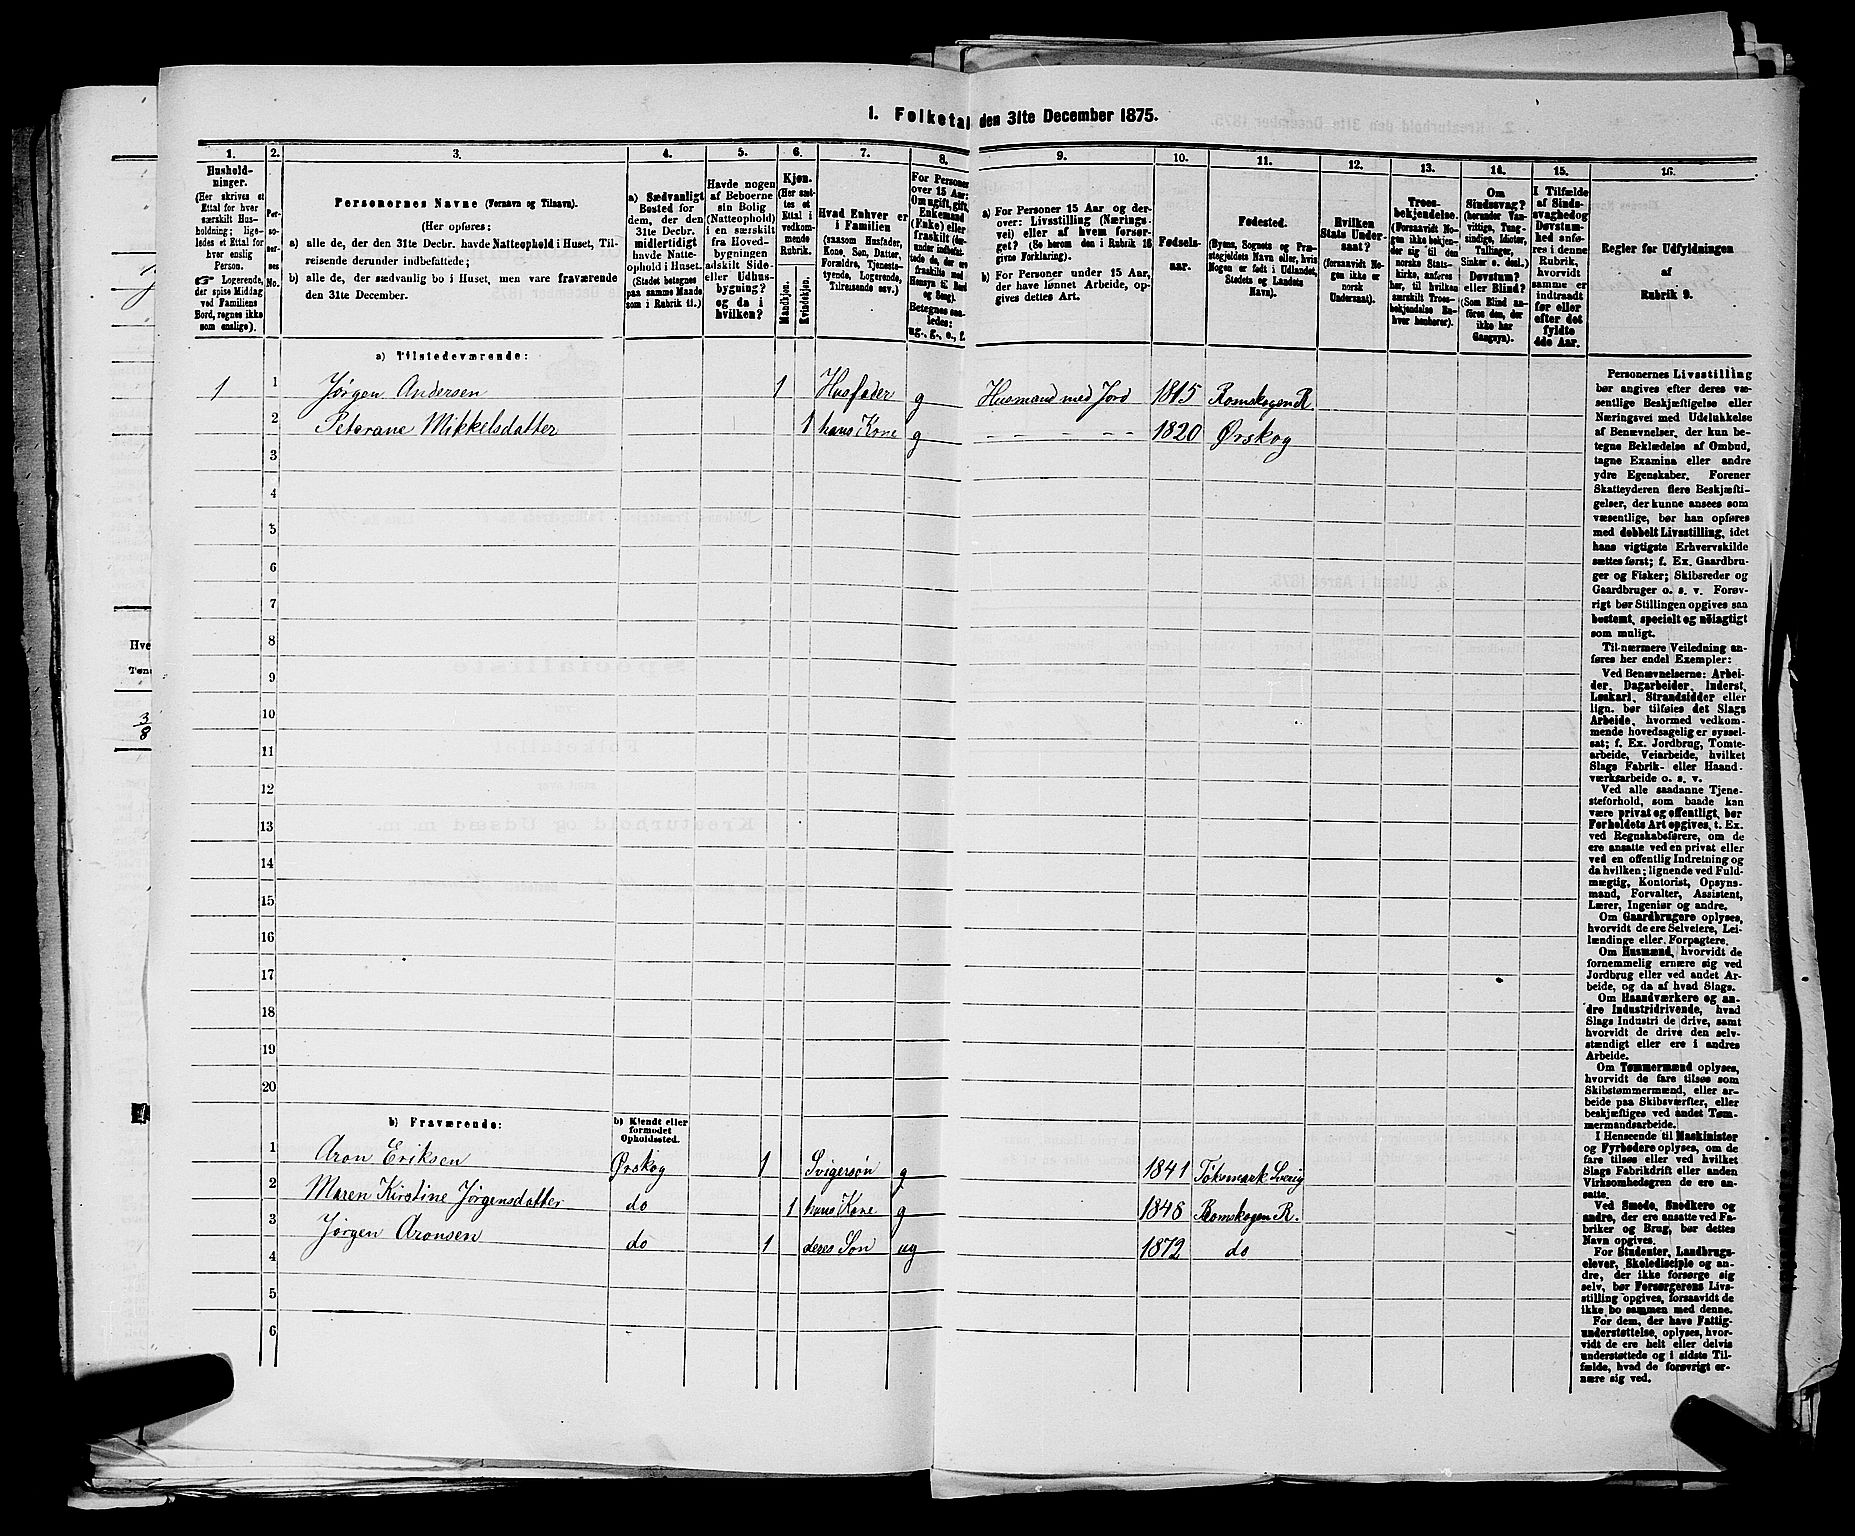 1. Folketal den 31te December 1875.
1.
2.
3.
4.
5.
6.
7.
8.
9.
10.
11.
12.
13.
14.
15.
16.
Husholdninger.
(Her skrives et Ettal for hver særskilt Husholdning; ligeledes et Ettal for hver enslig Person.
Logerende, der spise Middag ved Familiens Bord, regnes ikke som enslige).
Personernes No.
Personernes Navne (Fornavn og Tilnavn).
(Her opføres:
a) alle de, der den 31te Decbr. havde Natteophold i Huset, Tilreisende derunder indbefattede;
b) alle de, der sædvanlig bo i Huset, men vare fraværende den 31te December.
a) Sædvanligt Bosted for dem, der den 31te Decbr. midlertidigt havde Natteophold i Huset.
(Stedet betegnes paa samme Maade som i Rubrik 11.)
Havde nogen af Beboerne sin Bolig (Natteophold) i en særskilt fra Hovedbygningen adskilt Side- eller Udhusbygning? og da i hvilken?
Kjøn.
(Her sættes et Ettal i vedkommende Rubrik.
Mandkjøn.
Kvindekjøn.
Hvad Enhver er i Familien
(saasom Husfader, Kone, Søn, Datter, Forældre, Tjenestetyende, Logerende, Tilreisende osv.)
For Personer over 15 Aar: Om ugift, gift, Enkemand (Enke) eller fraskilt
Betegnes saaledes: ug., g., e., f.
a) For Personer 15 Aar og derover: Livsstilling (Næringsvei) eller af hvem forsørget? (Se herom den i Rubrik 16 givne Forklaring).
b) For Personer under 15 Aar, der have lønnet Arbeide, opgives dettes Art.
Fødselsaar.
Fødested.
(Byens, Sognets og Præstegjeldets Navn eller, hvis Nogen er født i Udlandet, Stedets og Landets Navn).
Hvilken Stats Undersaat?
(forsaavidt Nogen ikke er norsk Undersaat).
Troesbekjendelse.
(Forsaavidt Nogen ikke bekjender sig til den norske Statskirke, anføres her, til hvilken særskilt Troesbekjendelse Enhver henhører).
Om Sindssvag? (herunder Vanvittige, Tungsindige, Idioter, Tullinger, Sinker o. desl.) Døvstum? eller Blind?
(Som Blind anføres den, der ikke har Gangsyn).
I Tilfælde af Sindssvaghed og Døvstumhed anføres i denne Rubrik, hvorvidt samme er indtraadt før eller efter det fyldte 4de Aar.
Regler for Udfyldningen
af
Rubrik 9.
a) Tilstedeværende:
1 1 Jørgen Andersen 1 Husfader g Husmand med Jord 1815 Romskogen R
2 Peterane Mikkelsdatter 1 hans Kone g — — — — — 1820 Ørskog
3
4
5
6
7
8
9
10
11
12
13
14
15
16
17
18
19
20
b) Fraværende:
b) Kjendt eller formodet Opholdssted.
1 Aron Eriksen Ørskog 1 Svigersøn g 1841 Töksmark Sverig
2 Maren Kirstine Jørgensdatter do 1 hans Kone g 1848 Romskogen R.
3 Jørgen Aronsen do 1 deres Søn ug 1872 do
4
5
6
Personernes Livsstilling
bør angives efter deres væ-
sentlige Beskjæftigelse eller
Næringsvei med Udelukkelse
af Benævnelser, der kun be-
tegne Beklædelse af Ombud,
tagne Examina eller andre
ydre Egenskaber. Forener
Skatteyderen flere Beskjæfti-
gelser, der kunne ansees som
væsentlige, bør han opføres
med dobbelt Livsstilling, idet
hans vigtigste Erhvervskilde
sættes først; f. Ex. Gaardbru-
ger og Fisker; Skibsreder og
Gaardbruger o. s. v. Forøv-
rigt bør Stillingen opgives saa
bestemt, specielt og nøiagtigt
som muligt.
Til nærmere Veiledning an-
føres her endel Exempler:
Ved Benævnelserne: Arbei-
der, Dagarbeider, Inderst,
Løskarl, Strandsidder eller
lign. bør tilføies det Slags
Arbeide, hvormed vedkom-
mende hovedsagelig er syssel-
sat; f. Ex. Jordbrug, Tomte-
arbeide, Veiarbeide, hvilket
Slags Fabrik- eller Haand-
værksarbeide o. s. v.
Ved alle saadanne Tjene-
steforhold, som baade kan
være privat og offentligt, bør
Forholdets Art opgives, t. Ex.
ved Regnskabsførere, om de
ere ansatte ved en privat eller
ved en offentlig Indretning og
da hvilken; lignende ved Fuld-
mægtig, Kontorist, Opsyns-
mand, Forvalter, Assistent,
Lærer, Ingeniør og andre.
Om Gaardbrugere oplyses,
hvorvidt de ere Selveiere, Lei-
lændinge eller Forpagtere.
Om Husmænd, hvorvidt de
fornemmelig ernære sig ved
Jordbrug eller ved andet Ar-
beide, og da af hvad Slags.
Om Haandværkere og an-
dre Industridrivende, hvad
Slags Industri de drive, samt
hvorvidt de drive den selv-
stændigt eller ere i andres
Arbeide.
Om Tømmermænd oplyses,
hvorvidt de fare tilsøs som
Skibstømmermænd, eller ar-
beide paa Skibsværfter, eller
beskjæftiges ved andet Tøm-
mermandsarbeide.
I Henseende til Maskinister
og Fyrbødere oplyses, om de
fare tilsøs eller ved hvilket
Slags Fabrikdrift eller anden
Virksomhedsgren de ere an-
satte.
Ved Smede, Snedkere og
andre, der ere ansatte ved Fa-
briker og Brug, bør dettes
Navn opgives.
For Studenter, Landbrugs-
elever, Skoledisciple og an-
dre, der ikke forsørge sig
selv, bør Forsørgerens Livs-
stilling opgives, forsaavidt de
ikke bo sammen med denne.
For dem, der have Fattig-
understøttelse, oplyses, hvor-
vidt de ere helt eller delvis
understøttede og i sidste Til-
fælde, hvad de forøvrigt er-
nære sig ved.